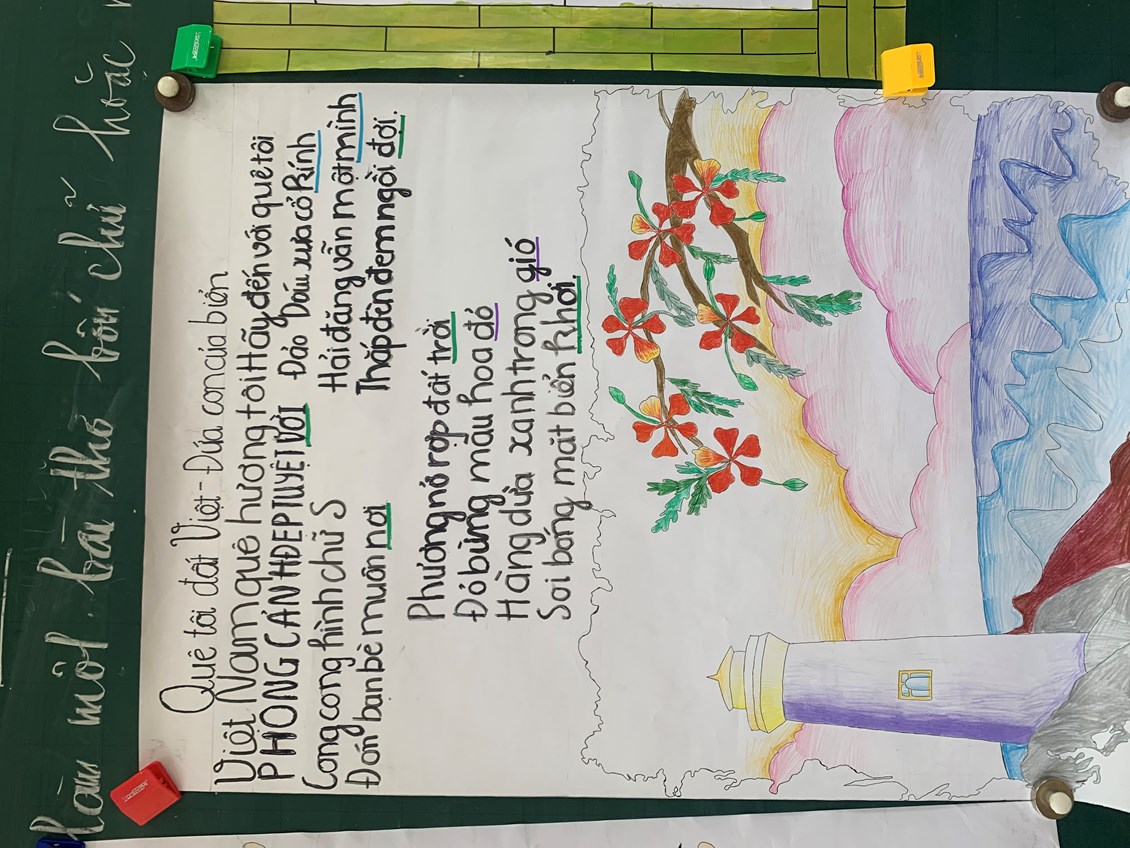 Làm một bài thơ bốn chữ hoặc
Quê tôi đất Việt - Đứa con của biển
Việt Nam quê hương tôi
PHONG CẢNH ĐẸP TUYỆT VỜI
Cong cong hình chữ S
Đón bạn bè muôn nơi
Hãy đến với quê tôi
Đảo Dấu xưa cổ kính
Hải đăng vẫn một mình
Thắp đèn đêm ngồi đợi.
Phượng nở rợp đất trời
Đỏ bừng màu hoa đỏ
Hàng dừa xanh trong gió
Soi bóng mặt biển khơi.